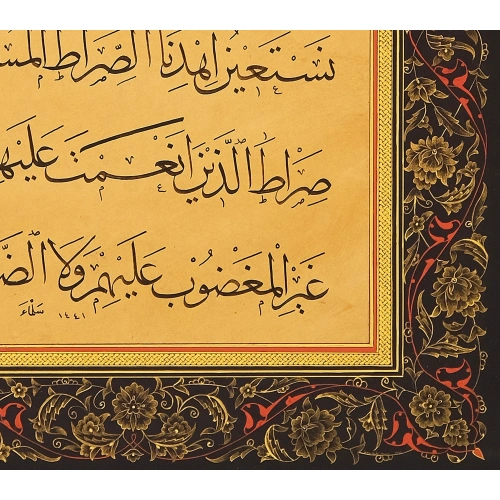 نَسْتَعِيْنُ اِهْدِنَا الصِّرَاطَ
صِرَاطَ الَّذِيْنَ اَنْعَمْتَ عَلَيْهِ
غَيْرِ الْمَغْضُوْبِ عَلَيْهِمْ وَلَا
١٤٤١